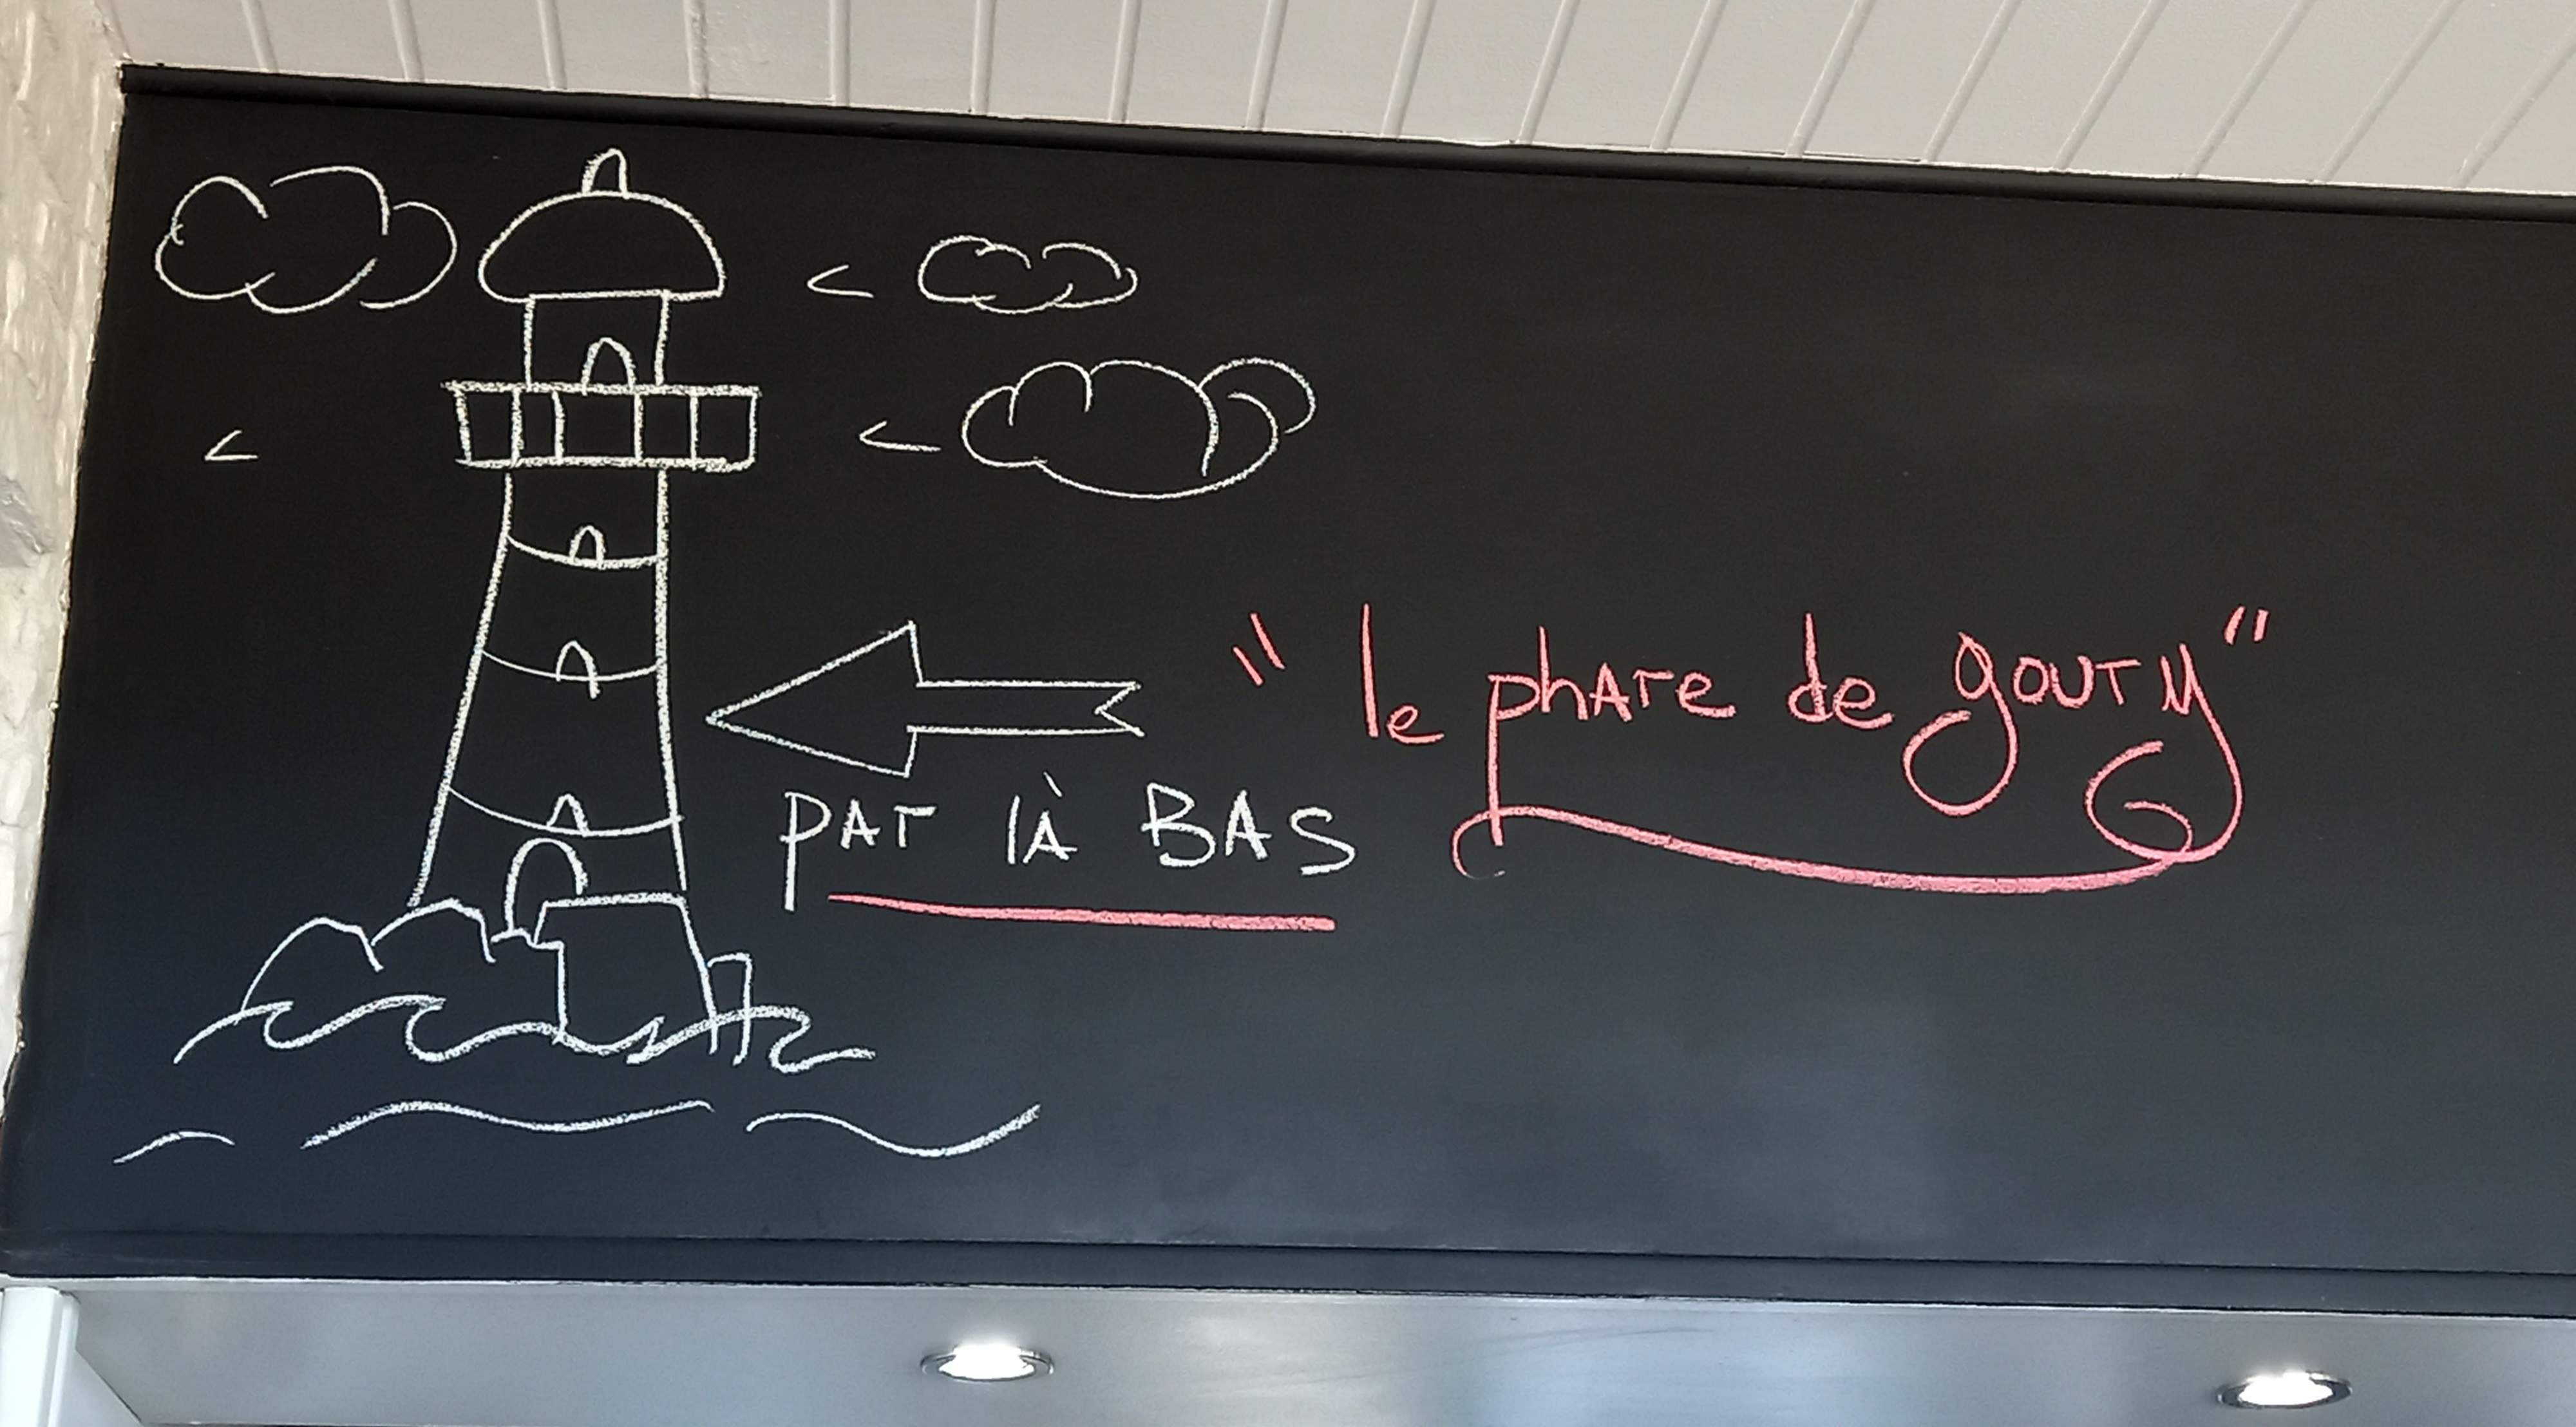 "le phare de goury"
par là BAS